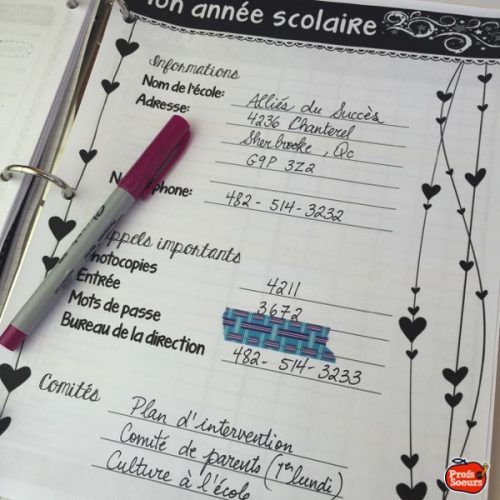 Mon année scolaire
Informations
Nom de l'école: Alliés du Succès
Adresse: 4236 Chanterel
Sherbrooke, Qc
G9P 3Z2
phone: 482-514-3232
Appels importants
Photocopies 4211
Entrée 3672
Mots de passe
Bureau de la direction 482-514-3233
Comités
Plan d'intervention
Comité de parents (1er lundi)
Culture à l'école
Profs Soeurs